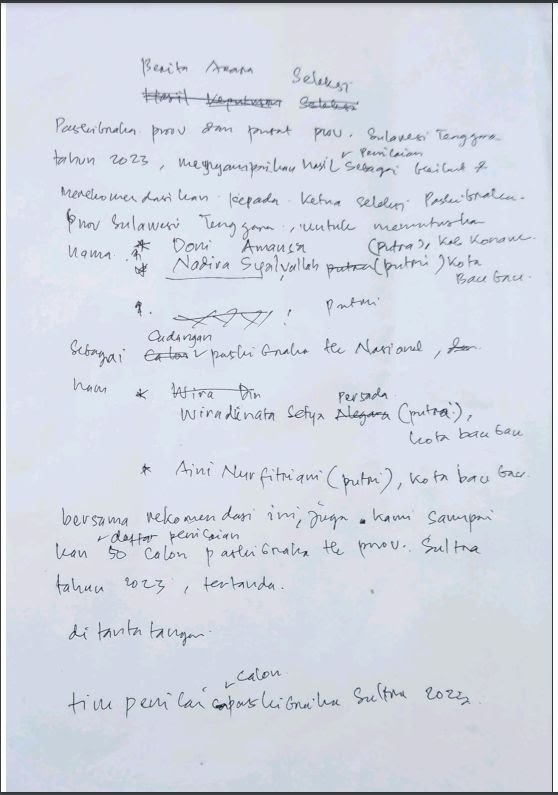 Berita Acara Seleksi
Hasil Keputusan Seleksi
Paskibraka prov dan pusat prov. Sulawesi Tenggara
tahun 2023, menyampaikan hasil penilaian sebagai berikut &
merekomendasikan kepada ketua seleksi Paskibraka
prov Sulawesi Tenggara, untuk memutuskan
nama * Doni Amansa (putra), Kab Konawe
* Nadira Syalvallah putra (putri) Kota
Bau bau.
putri
Sebagai Calon Cadangan paskibraka tk Nasional, dan
nam * Wira Din
Wiradinata Setya Negara Persada (putra),
kota bau bau
* Aini Nurfitriani (putri), kota bau bau.
bersama rekomendasi ini, juga kami sampai
kan daftar penilaian 50 Calon paskibraka tk prov. Sultra
tahun 2023, tertanda.
di tanta tangan.
tim penilai calon paskibraka Sultra 2023.